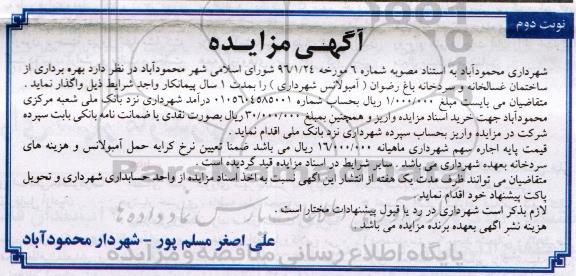 نوبت دوم
آگهی مزایده
شهرداری محمودآباد به استناد مصوبه شماره ۶ مورخه ۹۶/۱/۲۴ شورای اسلامی شهر محمودآباد در نظر دارد بهره برداری از
ساختمان غسالخانه و سردخانه باغ رضوان ( آمبولانس شهرداری ) را بمدت ۱ سال پیمانکار واجد شرایط ذیل واگذار نماید .
متقاضیان می بایست مبلغ ۱/۰۰۰/۰۰۰ ریال بحساب شماره ۰۱۰۵۶۰۴۵۸۵۰۰۱ درآمد شهرداری نزد بانک ملی شعبه مرکزی
محمودآباد جهت خرید اسناد مزایده واریز و همچنین بمبلغ ۳۰/۰۰۰/۰۰۰ ریال بصورت نقدی یا ضمانت نامه بانکی بابت سپرده
شرکت در مزایده واریز بحساب سپرده شهرداری نزد بانک ملی اقدام نماید .
قیمت پایه اجاره سهم شهرداری ماهیانه ۱۶/۰۰۰/۰۰۰ ریال می باشد ضمنا تعیین نرخ کرایه حمل آمبولانس و هزینه های
سردخانه بعهده شهرداری می باشد . سایر شرایط در اسناد مزایده قید گردیده است .
متقاضیان می توانند ظرف مدت یک هفته از انتشار این آگهی نسبت به اخذ اسناد مزایده از واحد حسابداری شهرداری و تحویل
پاکت پیشنهاد خود اقدام نماید.
لازم بذکر است شهرداری در رد یا قبول پیشنهادات مختار است .
هزینه نشر آگهی بعهده برنده مزایده می باشد .
علی اصغر مسلم پور - شهردار محمودآباد
پایگاه اطلاع رسانی مناقصه و مزایده